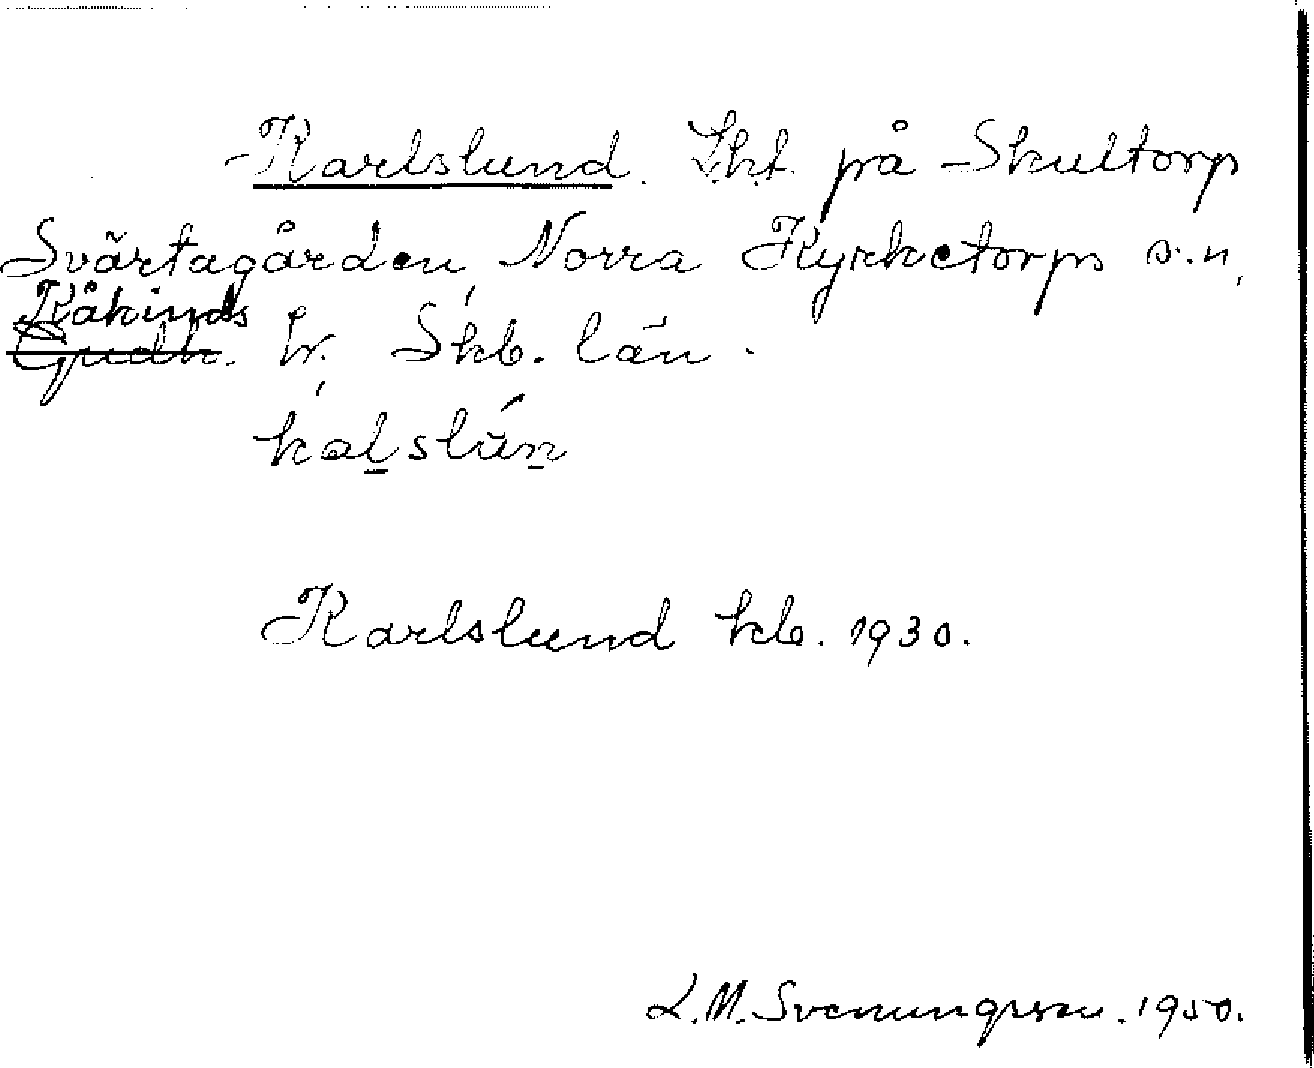 Karlslund. Lht. på Skultorp
Svärtagården, Norra Kyrketorps sn,
Kåkinds
Gudh. hr. Skb. län.
kaḻslún̲
Karlslund kb. 1930.
L.M. Svenungsson. 1950.